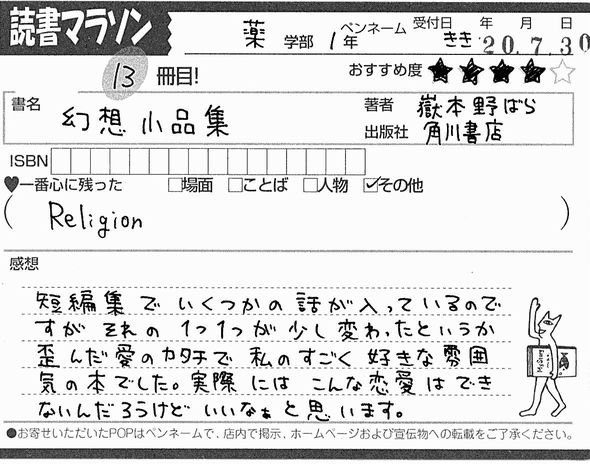 読書マラソン
薬 学部 1年 ペンネーム きき 受付日 20. 年 7. 月 30 日
13 冊目! おすすめ度 ★★★★☆
書名 幻想小品集 著者 嶽本野ばら
出版社 角川書店
ISBN
♥一番心に残った □場面 □ことば □人物 ☑その他
( Religion )
感想
短編集でいくつかの話が入っているので
すがそれの1つ1つが少し変わったというか
歪んだ愛のカタチで私のすごく好きな雰囲
気の本でした。実際にはこんな恋愛はでき
ないんだろうけどいいなぁと思います。
●お寄せいただいたPOPはペンネームで、店内で掲示、ホームページおよび宣伝物への転載をご了承ください。